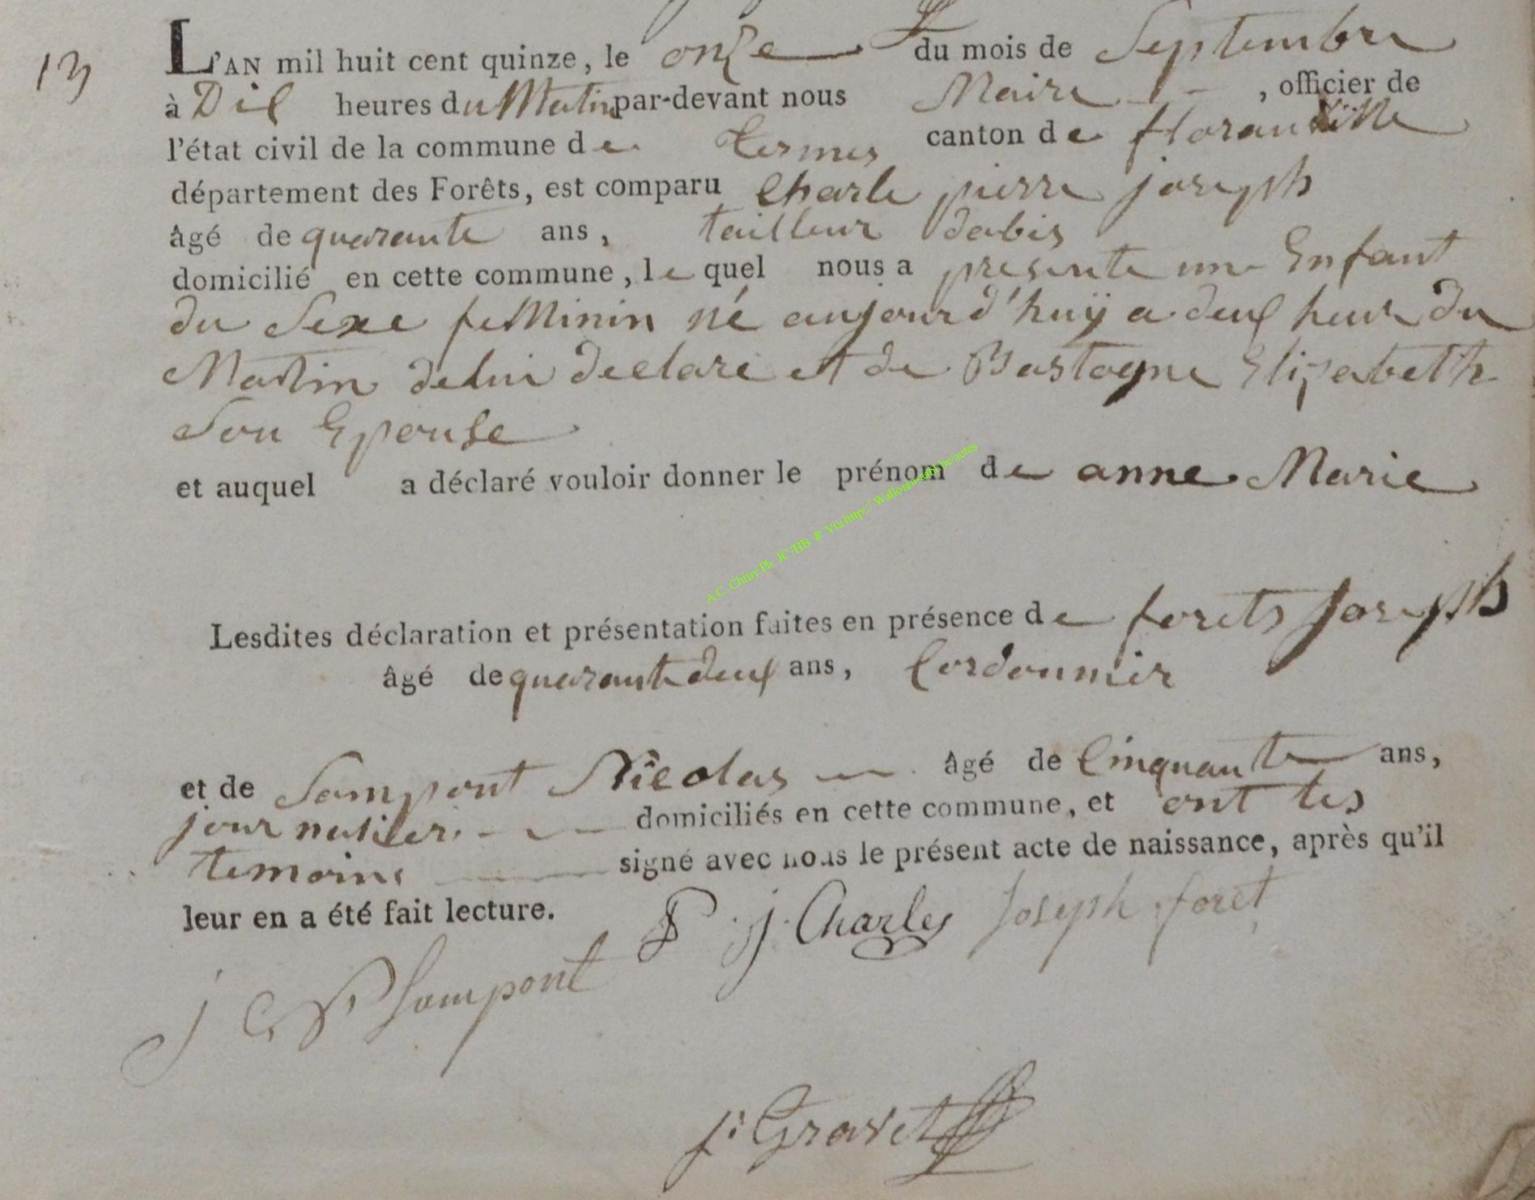 13
L'AN mil huit cent quinze, le onze du mois de Septembre
à Dix heures du Mattin par-devant nous Maire - - , officier de
l'état civil de la commune de termes canton de floranville
département des Forêts, est comparu Charle pierre joseph
âgé de quarante ans, tailleur dabis
domicilié en cette commune, le quel nous a presente un Enfant
du Sexe feMinin né aujourd'huÿ a deux heure du
Mattin de lui declaré et de Bastogne Elizabetth
Son Epouse
et auquel a déclaré vouloir donner le prénom de anne Marie
Lesdites déclaration et présentation faites en présence de forets joseph
âgé de quarante deux ans, Cordonnier
et de Sampont Nicolas âgé de Cinquante ans,
domiciliés en cette commune, et ont les
temoins signé avec nous le présent acte de naissance, après qu'il
leur en a été fait lecture.
P j Charles Joseph foret
Sampont
Gravet